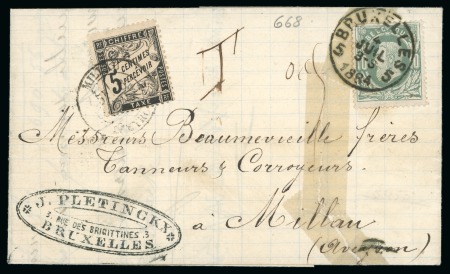 668
BRUXELLES
5 JUIL 5
1884
CHIFFRE
5 CENTIMES
À PERCEVOIR
TAXE
Messieurs Beaumevieille frères
Tanneurs & Corroyeurs
à Millau
(Aveyron)
J. PLETINCKX
3, RUE DES BRIGITTINES, 3
BRUXELLES